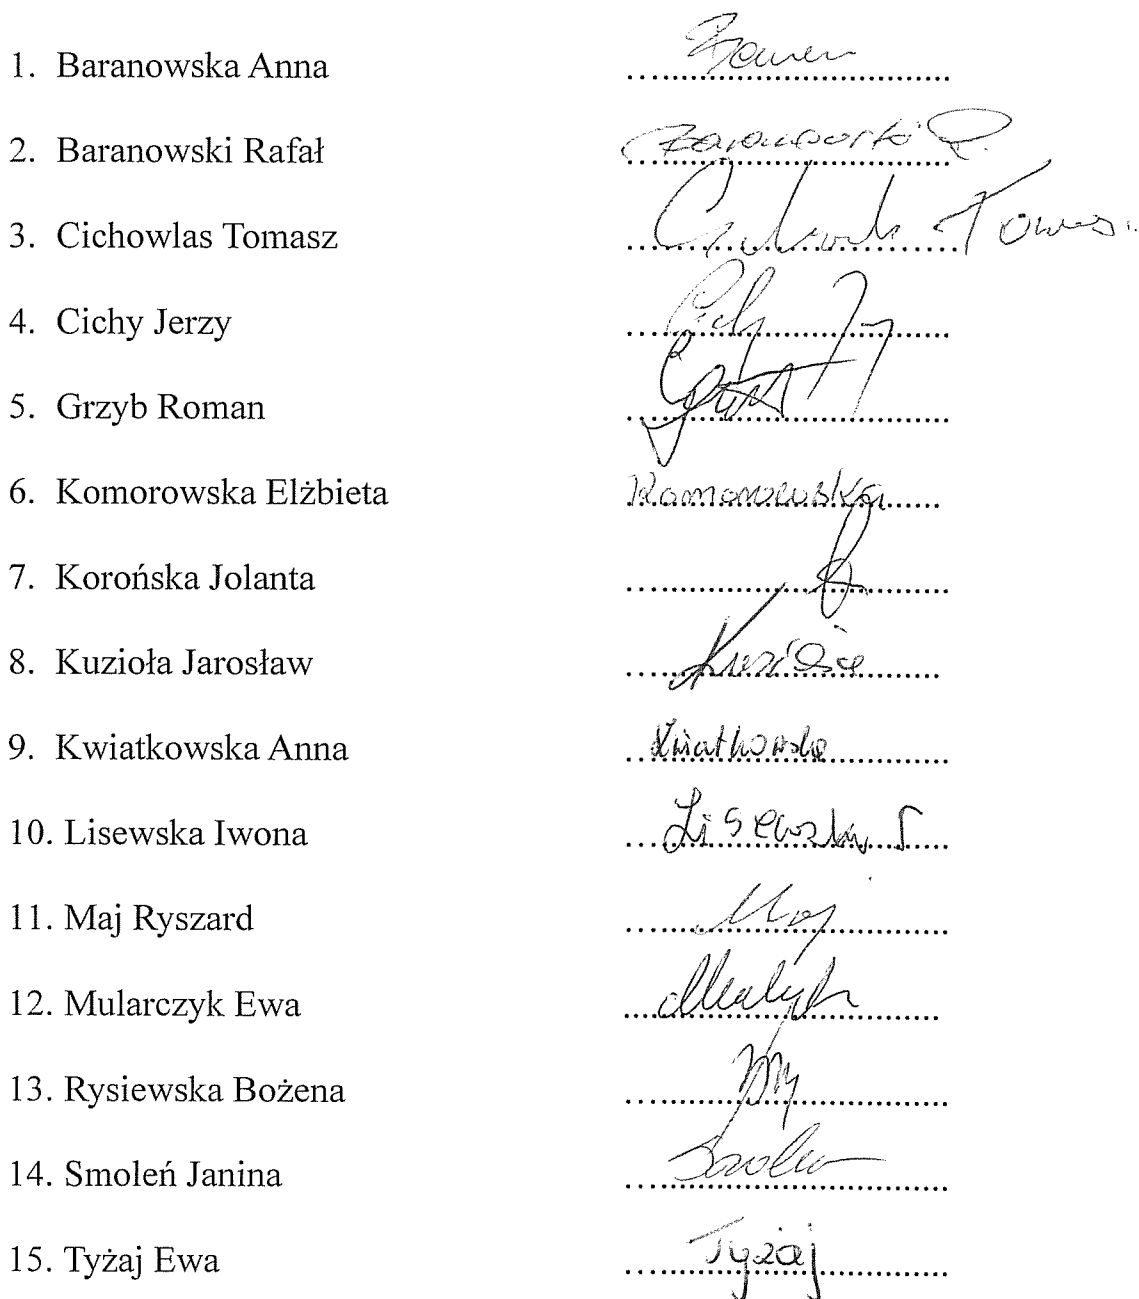 1. Baranowska Anna
2. Baranowski Rafał Baranowski R.
3. Cichowlas Tomasz
4. Cichy Jerzy Cichy
5. Grzyb Roman
6. Komorowska Elżbieta Komorowska
7. Korońska Jolanta
8. Kuzioła Jarosław
9. Kwiatkowska Anna Kwiatkowska
10. Lisewska Iwona Lisewska I
11. Maj Ryszard Maj
12. Mularczyk Ewa
13. Rysiewska Bożena
14. Smoleń Janina
15. Tyżaj Ewa Tyżaj